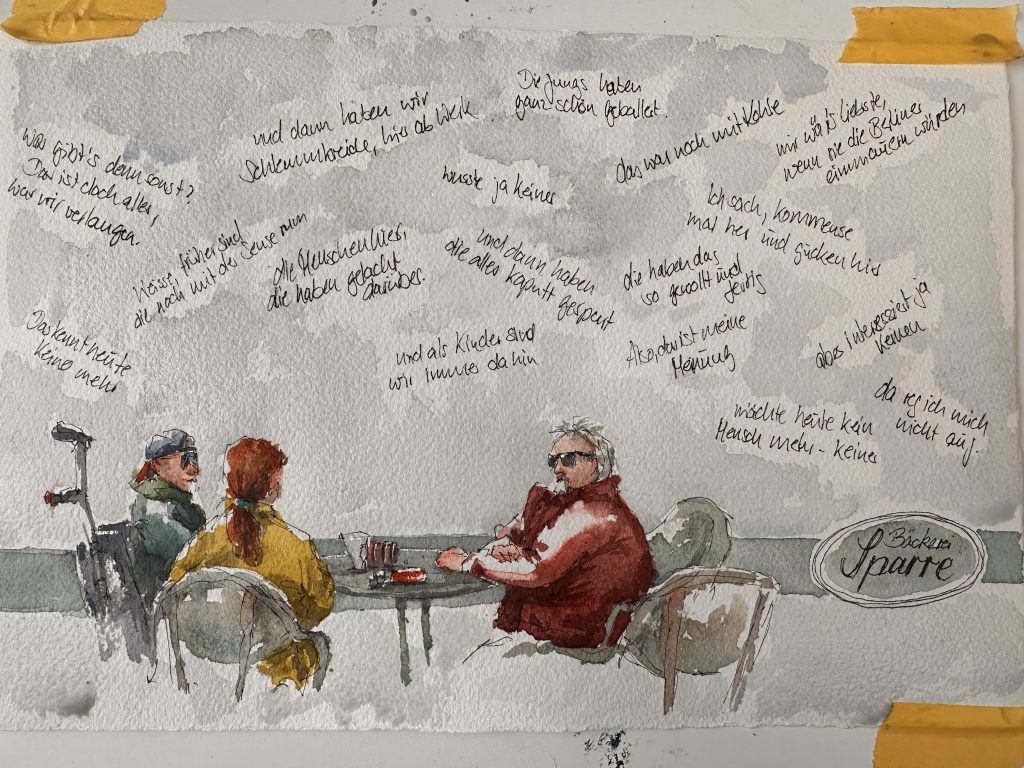 Was gibt's denn sonst?
Das ist doch alles,
was wir verlangen.
und dann haben wir
Schlemmkreide, hier ab Werk
Die Jungs haben
ganz schön geballert.
das war noch mit Kohle
mir wär's liebste,
wenn sie die Berliner
einmauern würden
wusste ja keiner
Ich sach, kommense
mal her und gucken hin
Weisse, früher sind
die noch mit der Sense rum
die Menschen hier,
die haben gelacht
darüber.
und dann haben
die alles kaputt gespart
die haben das
so gewollt und
fertig
Das kennt heute
keine mehr
und als Kinder sind
wir immer da hin
Also, das ist meine
Meinung
aber interessiert ja
keinen
da reg ich mich
nicht auf.
möchte heute kein
Mensch mehr - keiner
Bäckerei
Sparre